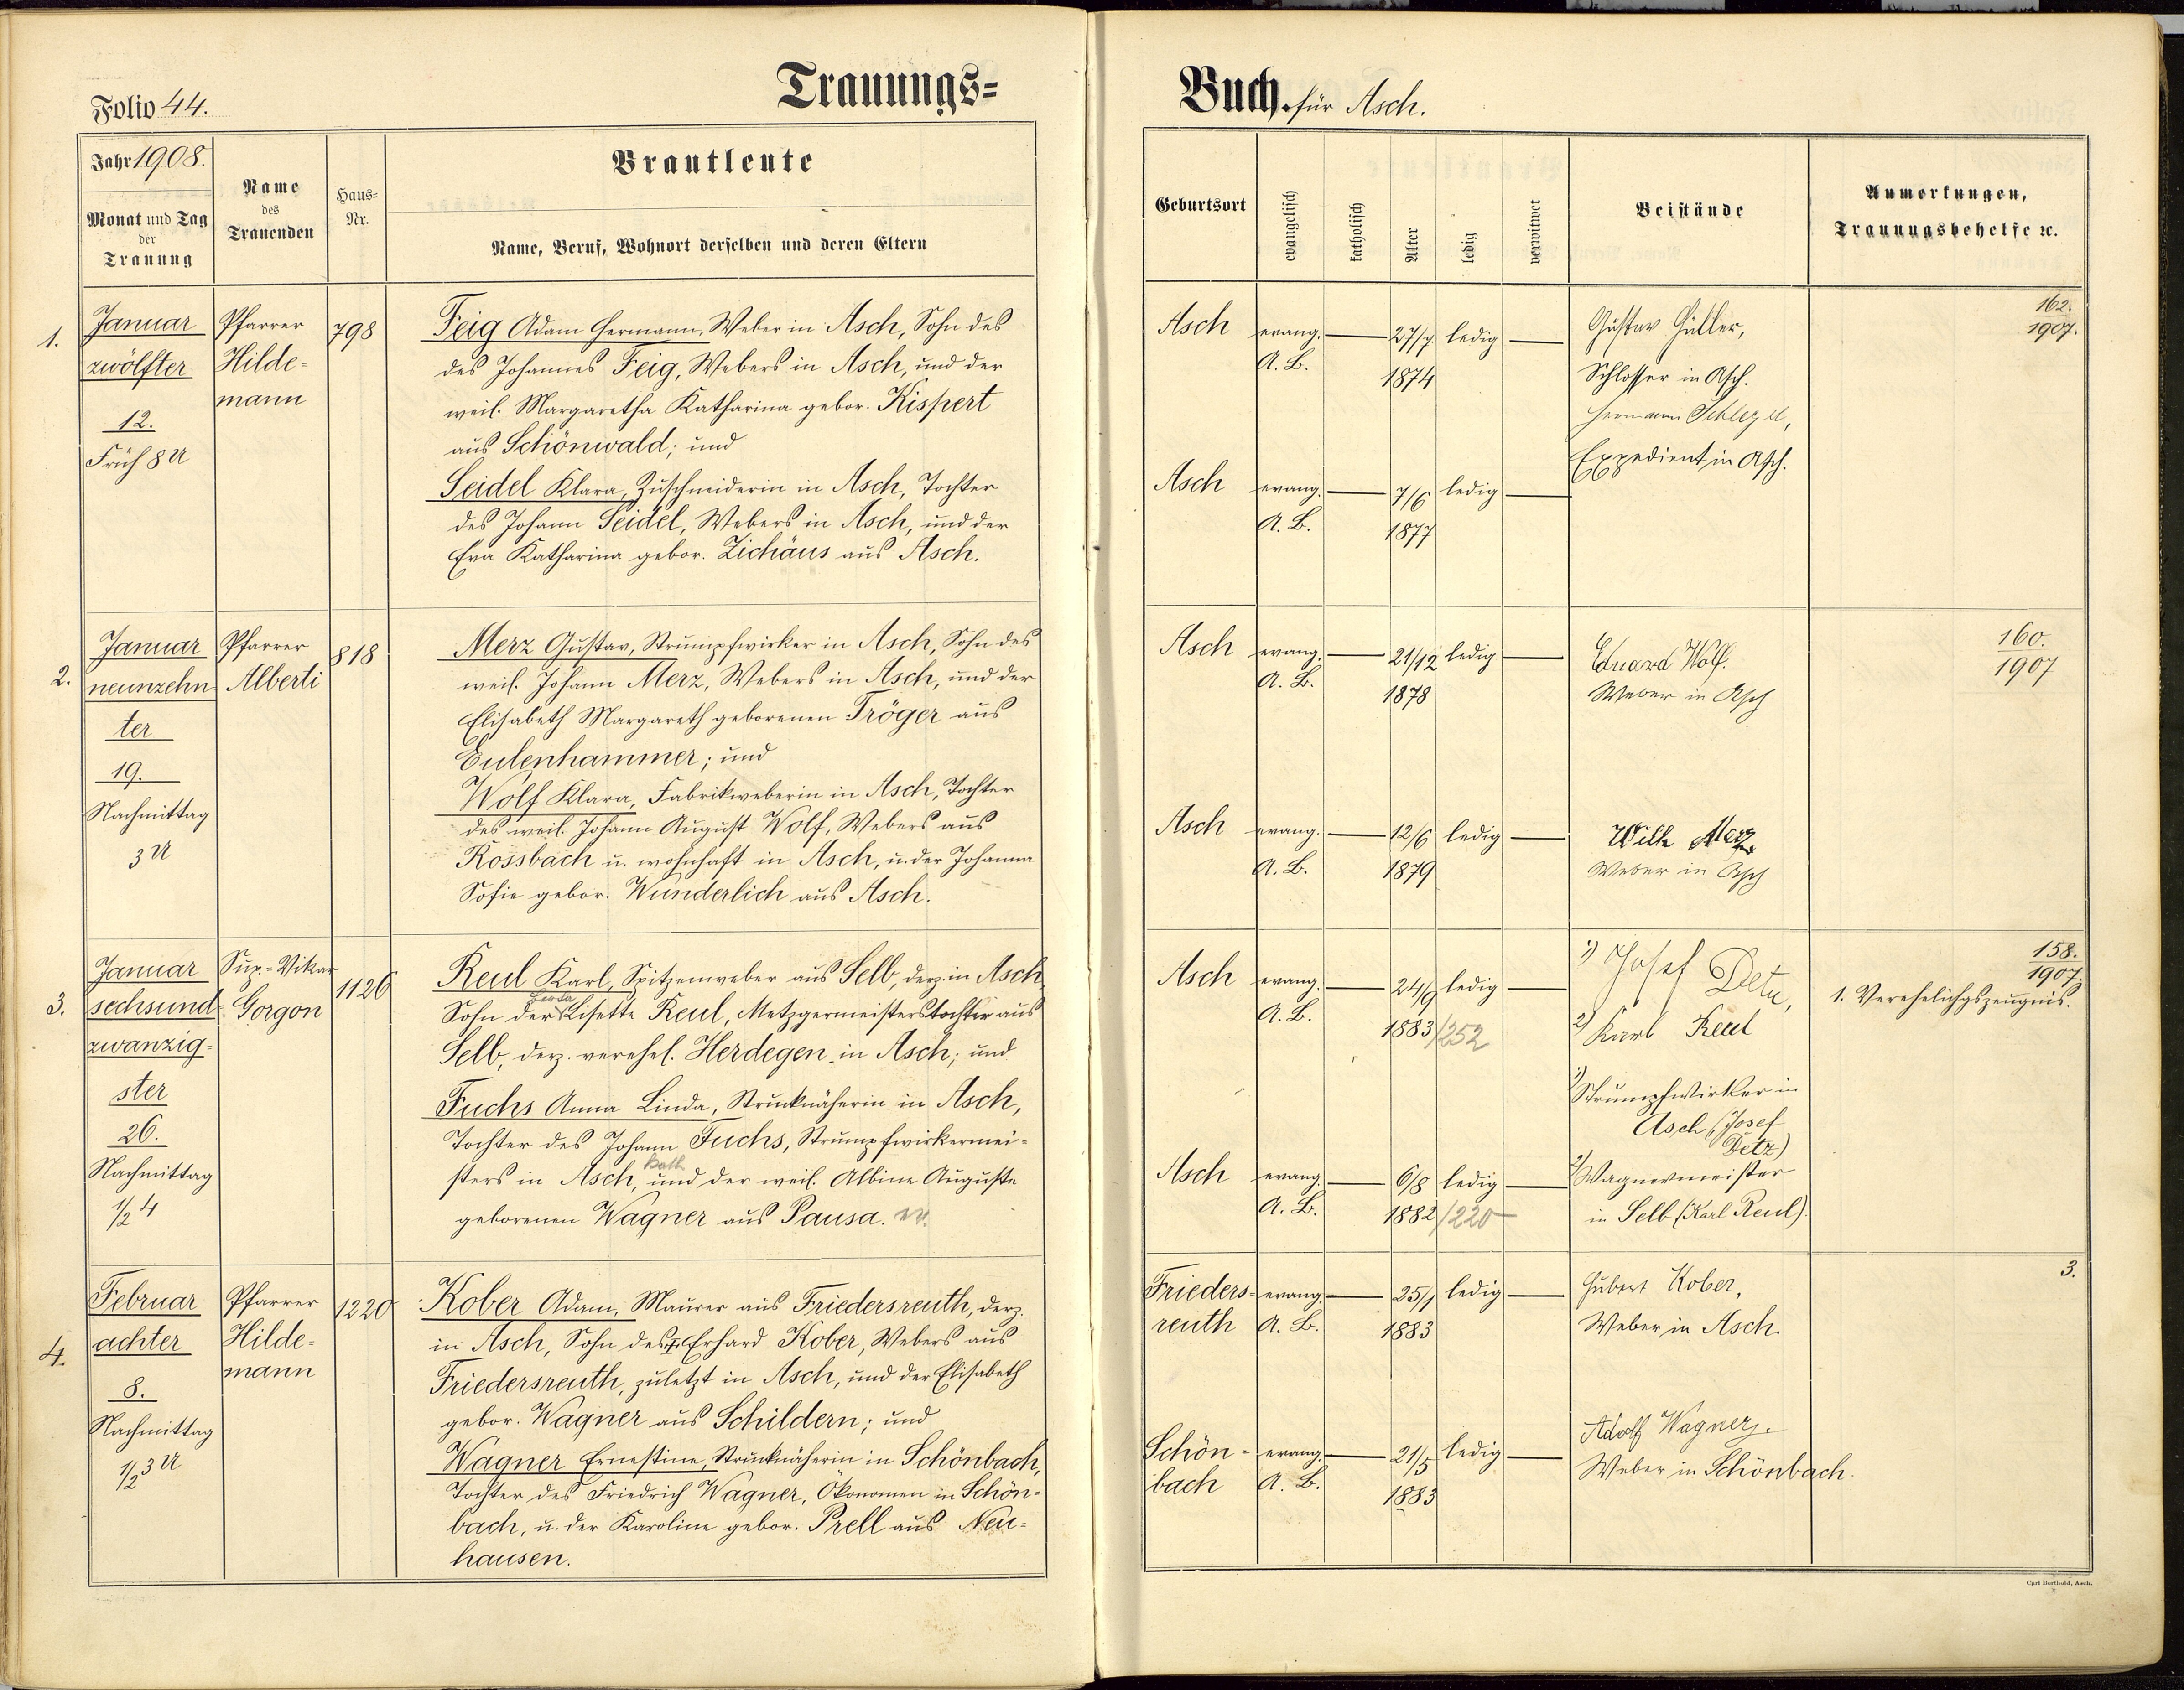 Trauungs=
Folio 44.
Jahr 1908.
Monat und Tag
der
Trauung
Name
des
Trauenden
Haus=
Nr.
Brautleute
Name, Beruf, Wohnort derselben und deren Eltern
1.
Januar
zwölfter
12.
Früh 8 U
Pfarrer
Hilde=
mann
798
Feig Adam Hermann, Weber in Asch, Sohn des
des Johannes Feig, Webers in Asch, und der
weil. Margaretha Katharina gebor. Kispert
aus Schönwald; und
Seidel Klara, Zuschneiderin in Asch, Tochter
des Johann Seidel, Webers in Asch, und der
Eva Katharina gebor. Zichäus aus Asch.
2.
Januar
neunzehn
ter
19.
Nachmittag
3 U
Pfarrer
Alberti
818
Merz Gustav, Strumpfwirker in Asch, Sohn des
weil. Johann Merz, Webers in Asch, und der
Elisabeth Margareth geborenen Tröger aus
Eulenhammer; und
Wolf Klara, Fabrikweberin in Asch, Tochter
des weil. Johann August Wolf, Webers aus
Rossbach u. wohnhaft in Asch, u. der Johanna
Sofie gebor. Wunderlich aus Asch.
3.
Januar
sechsund=
zwanzig=
ster
26.
Nachmittag
1/2 4
Sup.=Vikar
Gorgon
1126
Reul Karl, Spitzenweber aus Selb, derz. in Asch
Sohn der Lisette Reul, Metzgermeisterstochter aus
Selb, derz. verehel. Herdegen in Asch; und
Fuchs Anna Linda, Strucknäherin in Asch,
Tochter des Johann Fuchs, Strumpfwirkermei=
sters in Asch, und der weil. Albine Auguste
geborenen Wagner aus Pausa.
4.
Februar
achter
8.
Nachmittag
1/2 3 U
Pfarrer
Hilde=
mann
1220
Kober Adam, Maurer aus Friedersreuth, derz.
in Asch, Sohn des Erhard Kober, Webers aus
Friedersreuth, zuletzt in Asch, und der Elisabeth
gebor. Wagner aus Schildern; und
Wagner Ernestine, Strucknäherin in Schönbach,
Tochter des Friedrich Wagner, Ökonomen in Schön=
bach, u. der Karoline gebor. Prell aus Neu=
hausen.
Buch für Asch.
Geburtsort
evangelisch
katholisch
Alter
ledig
verwitwet
Beistände
Anmerkungen,
Trauungsbehelfe ꝛc.
Asch evang. 27/7 ledig
A. B. 1874
Gustav Hüller,
Schlosser in Asch.
Hermann Schlegel,
Expedient in Asch.
162.
1907.
Asch evang. 7/6 ledig
A. B. 1877
Asch evang. 21/12 ledig
A. B. 1878
Eduard Wolf.
Weber in Asch
160.
1907
Asch evang. 12/6 ledig
A. B. 1879
Wilh Merz
Weber in Asch
Asch evang. 24/9 ledig
A. B. 1883/252
1) Josef Detz,
2) Karl Reul
1) Strumpfwirker in
Asch (Josef
Detz)
2) Wagnermeister
in Selb (Karl Reul).
158.
1907.
1. Verehelichgszeugnis.
Asch evang. 6/8 ledig
A. B. 1882/220
Frieders= evang. 25/1 ledig
reuth A. B. 1883
Hubert Kober,
Weber in Asch.
3.
Schön= evang. 21/5 ledig
bach A. B. 1883
Adolf Wagner.
Weber in Schönbach.
Carl Berthold, Asch.